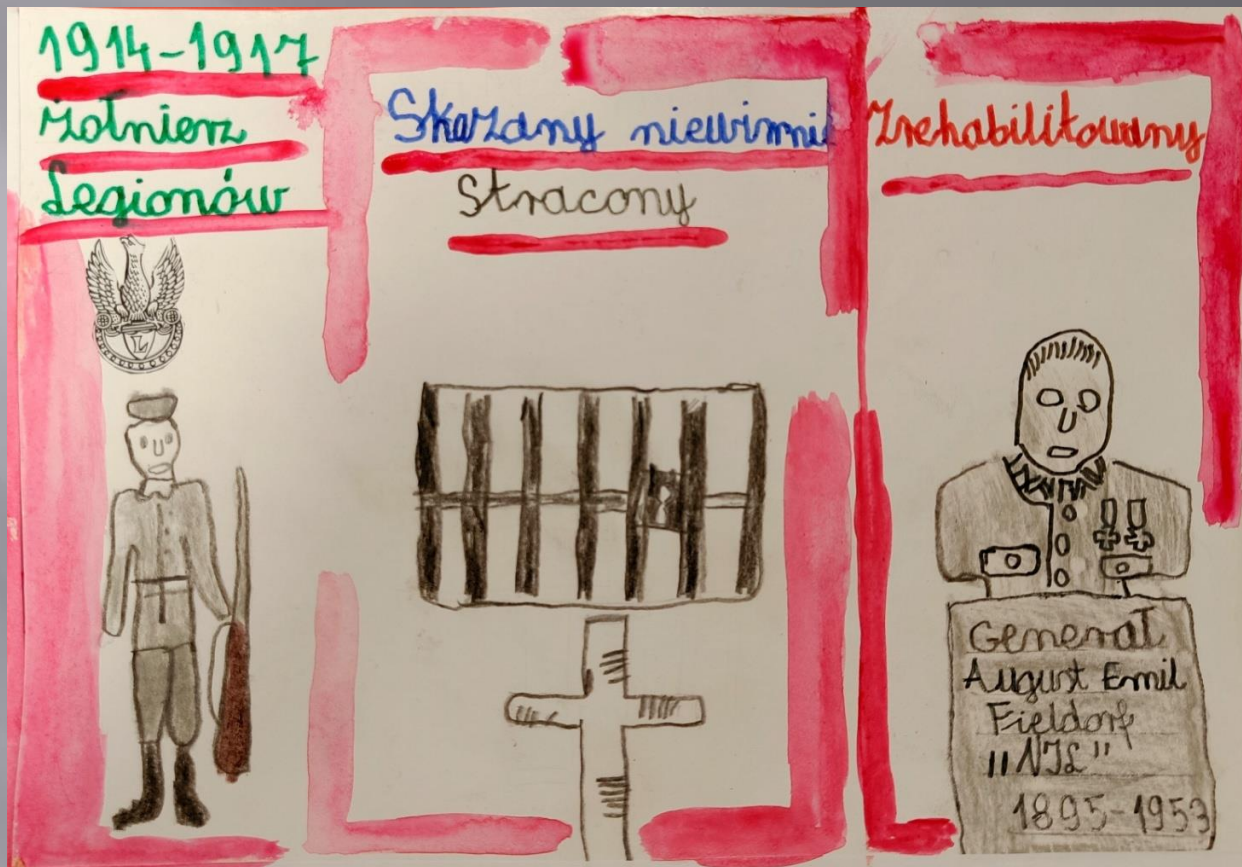 1914-1917
Żołnierz
Legionów
L
Skazany niewinnie
Stracony
Zrehabilitowany
Generał
August Emil
Fieldorf
"NIL"
1895-1953